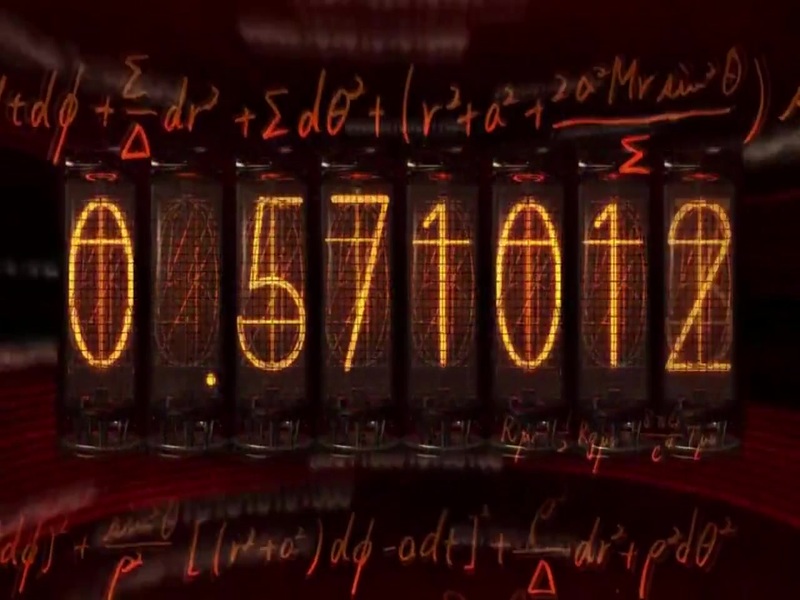 tdϕ + Σ/Δ dr² + Σdθ² + (r² + a² + 2a²Mr sin²θ/Σ)
0.571012
dϕ]² + sin²θ/ρ² [(r² + a²)dϕ - adt]² + ρ²/Δ dr² + ρ²dθ²